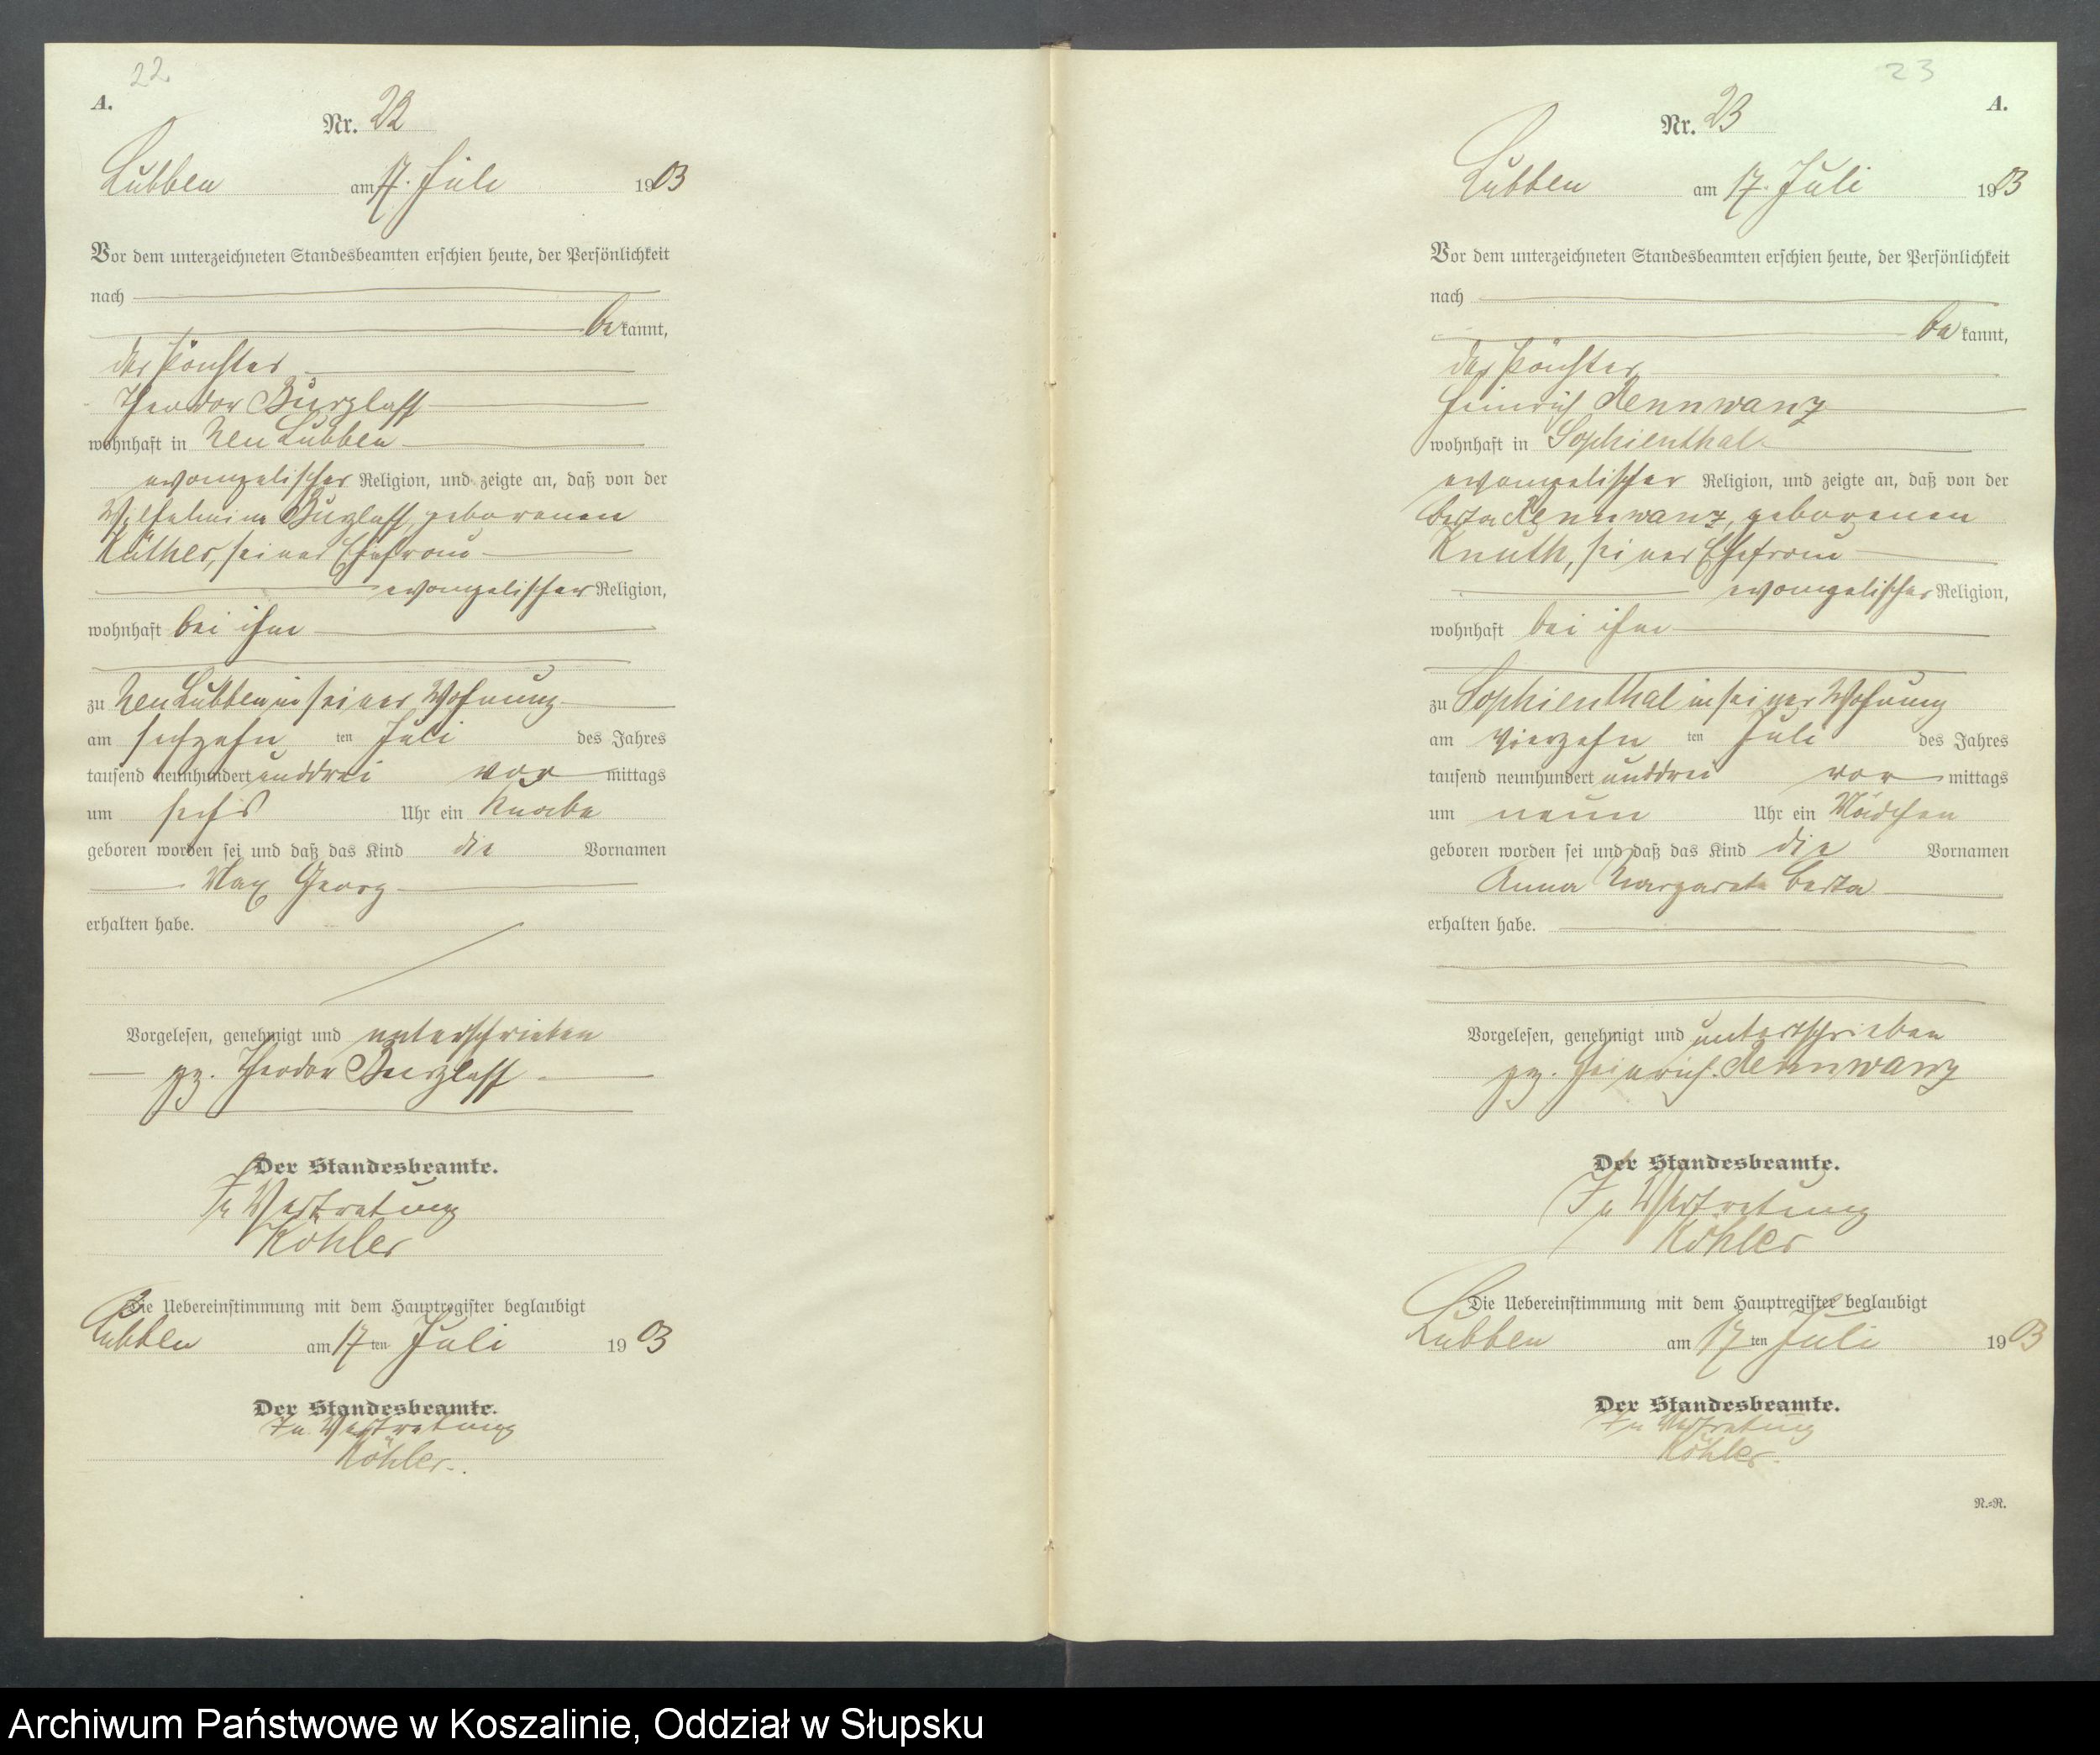 22.
A.
Nr. 22
Lubben am 17. Juli 1903
Vor dem unterzeichneten Standesbeamten erschien heute, der Persönlichkeit
nach
bekannt,
der
Theodor Burzlaff
wohnhaft in Neu Lubben
evangelischer Religion, und zeigte an, daß von der
Wilhelmine Burzlaff, geborenen
seiner Ehefrau
evangelischer Religion,
wohnhaft bei ihm
zu Neu Lubben in seiner Wohnung
am sechzehn ten Juli des Jahres
tausend neunhundert unddrei vormittags
um sechs Uhr ein Knabe
geboren worden sei und daß das Kind die Vornamen
Max Georg
erhalten habe.
Vorgelesen, genehmigt und unterschrieben
gz. Theodor Burzlaff
Der Standesbeamte.
In Vertretung
Köhler
Die Uebereinstimmung mit dem Hauptregister beglaubigt
Lubben am 17 ten Juli 1903
Der Standesbeamte.
In Vertretung
Köhler.
23
A.
Nr. 23
Lubben am 17. Juli 1903
Vor dem unterzeichneten Standesbeamten erschien heute, der Persönlichkeit
nach
bekannt,
der
Heinrich Rennwanz
wohnhaft in Sophienthal
evangelischer Religion, und zeigte an, daß von der
Berta Rennwanz, geborenen
Knuth, seiner Ehefrau
evangelischer Religion,
wohnhaft bei ihm
zu Sophienthal in seiner Wohnung
am vierzehn ten Juli des Jahres
tausend neunhundert unddrei vormittags
um neun Uhr ein Mädchen
geboren worden sei und daß das Kind die Vornamen
Anna Margarete Berta
erhalten habe.
Vorgelesen, genehmigt und unterschrieben
gz. Heinrich Rennwanz
Der Standesbeamte.
In Vertretung
Köhler
Die Uebereinstimmung mit dem Hauptregister beglaubigt
Lubben am 17 ten Juli 1903
Der Standesbeamte.
In Vertretung
Köhler.
N.=N.
Archiwum Państwowe w Koszalinie, Oddział w Słupsku